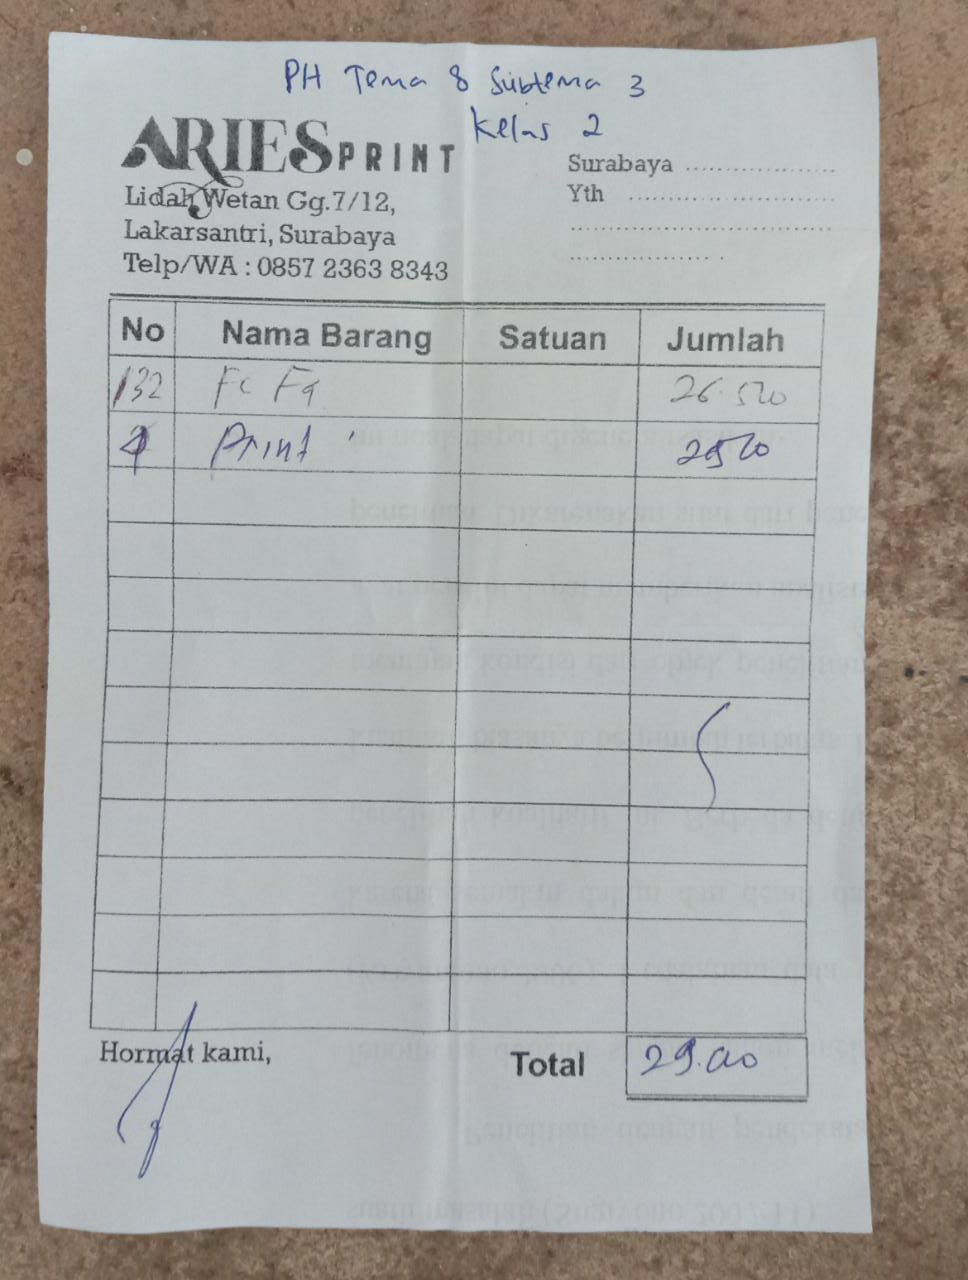 PH Tema 8 Subtema 3
Kelas 2
ARIES PRINT
Lidah Wetan Gg.7/12,
Lakarsantri, Surabaya
Telp/WA : 0857 2363 8343
Surabaya
Yth
No Nama Barang Satuan Jumlah
132 Fc F4 26.500
Print 2500
Hormat kami,
Total 29.000